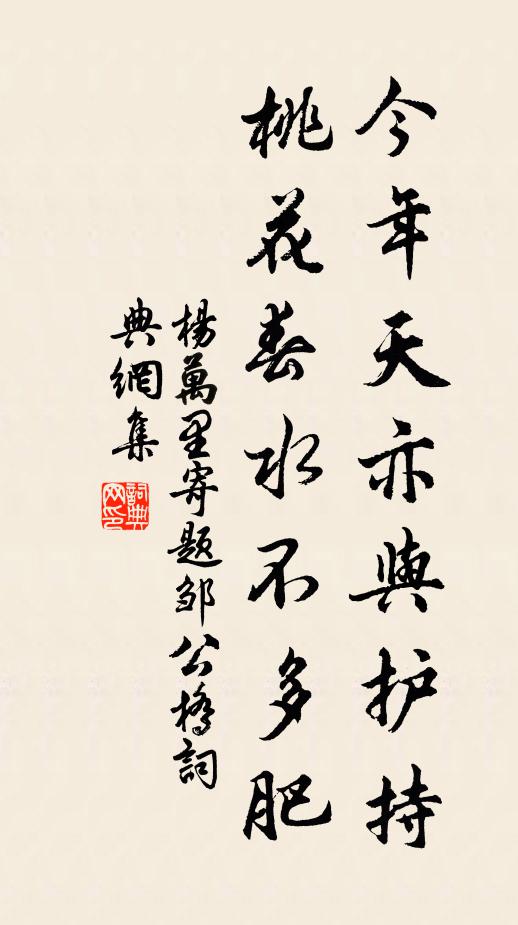 今年天亦與护持
桃花春水不多肥
楊萬里寄題邹公橋詞
典網集
詞典
网印